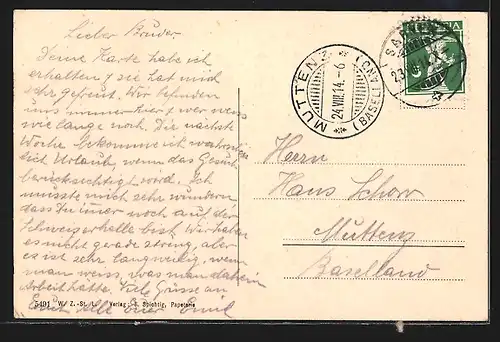 Lieber Bruder
Deine Karte habe ich
erhalten & sie hat mich
sehr gefreut. Wir befinden
uns immer hier & wer weiss
wie lange noch. Die nächste
Woche bekomme ich wahrscheinlich
Urlaub, wenn das Gesuch
berücksichtigt wird. Ich
musste mich sehr wundern
dass Du immer noch auf der
Schweizerhalle bist. Wir haben
es nicht gerade streng, aber
es ist sehr langweilig, wenn
man weiss, was man daheim
Arbeit hätte. Viele Grüsse an
Euch alle Euer Emil
5491 W. Z.-St. L. Verlag: Spichtig, Papeterie
MUTTENZ
24.VIII.14.-6
(BASEL LAND)
SARNEN
23
HELVETIA
5
Herrn
Hans Schorr
Muttenz
Baselland